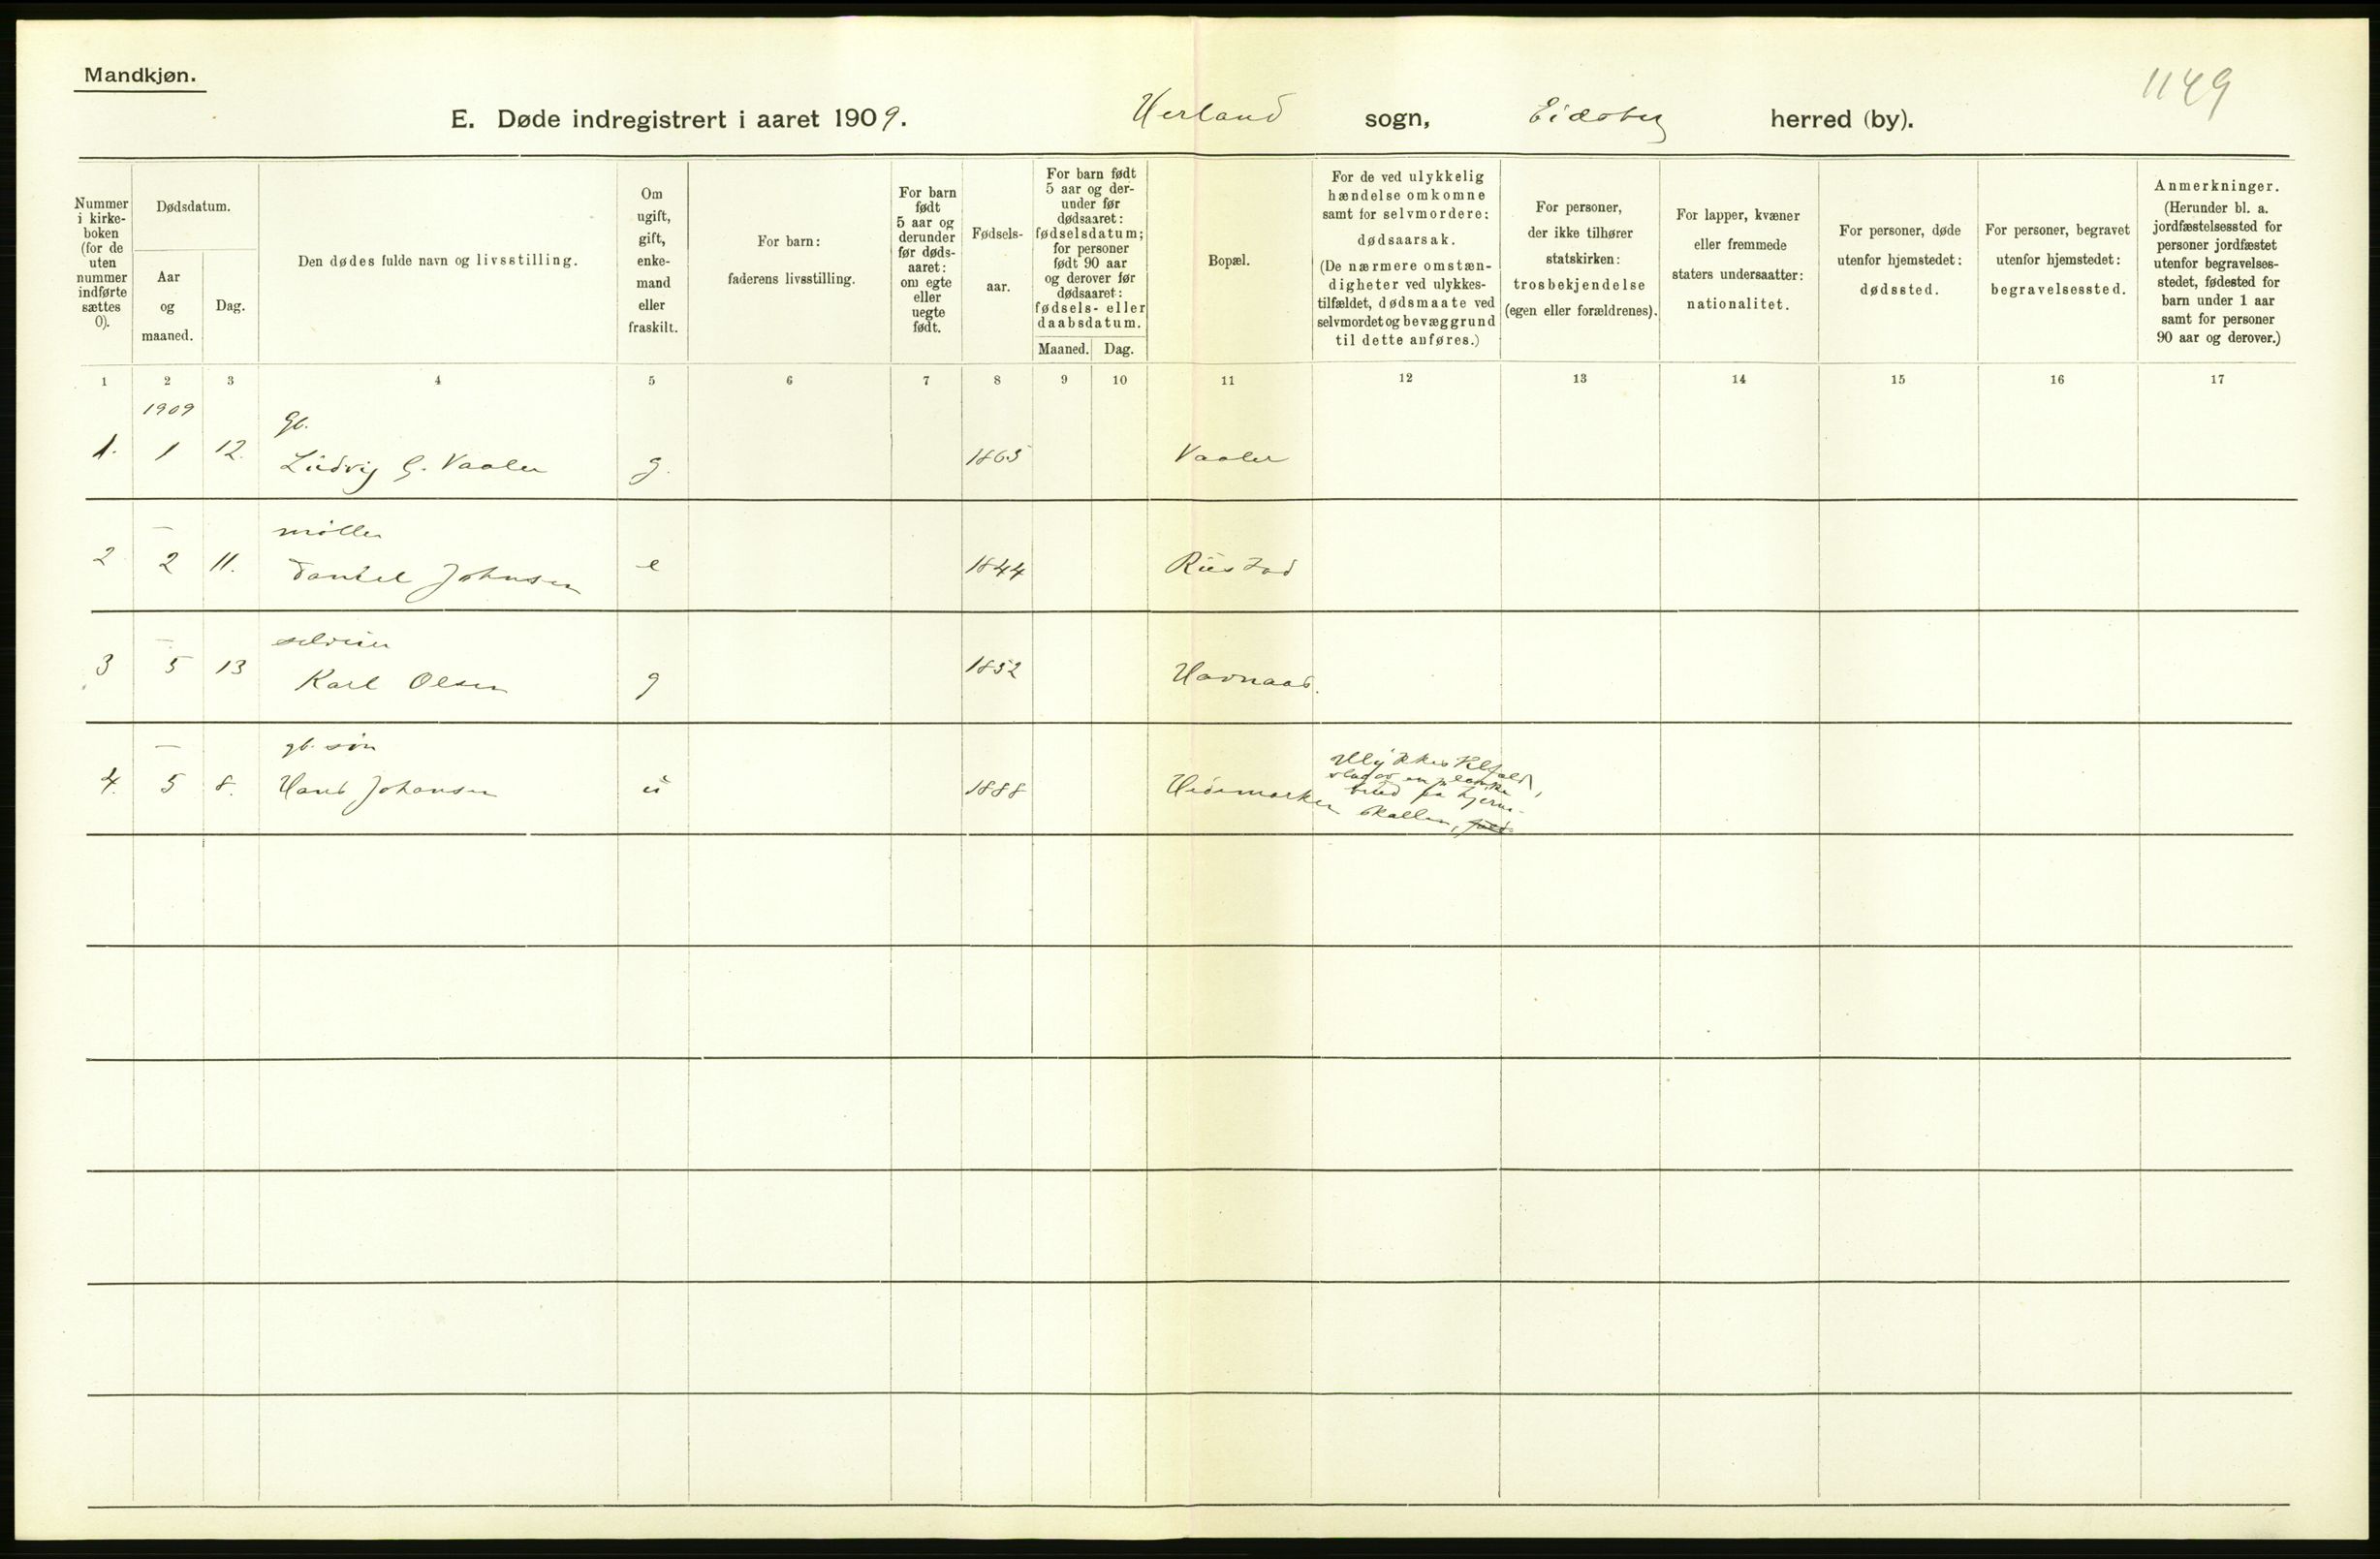 Mandkjøn.
1149
E. Døde indregistrert i aaret 1909. Herland sogn, Eidsberg herred (by).
Nummer i kirkeboken (for de uten nummer indførte sættes 0).
Dødsdatum.
Aar og maaned.
Dag.
Den dødes fulde navn og livsstilling.
Om ugift, gift, enkemand eller fraskilt.
For barn: faderens livsstilling.
For barn født 5 aar og derunder før dødsaaret: om egte eller uegte født.
Fødselsaar.
For barn født 5 aar og derunder før dødsaaret: fødselsdatum; for personer født 90 aar og derover før dødsaaret: fødsels- eller daabsdatum.
Maaned.
Dag.
Bopæl.
For de ved ulykkelig hændelse omkomne samt for selvmordere: dødsaarsak. (De nærmere omstændigheter ved ulykkestilfældet, dødsmaate ved selvmordet og bevæggrund til dette anføres.)
For personer, der ikke tilhører statskirken: trosbekjendelse (egen eller forældrenes).
For lapper, kvæner eller fremmede staters undersaatter: nationalitet.
For personer, døde utenfor hjemstedet: dødssted.
For personer, begravet utenfor hjemstedet: begravelsessted.
Anmerkninger. (Herunder bl. a. jordfæstelsessted for personer jordfæstet utenfor begravelsesstedet, fødested for barn under 1 aar samt for personer 90 aar og derover.)
1 2 3 4 5 6 7 8 9 10 11 12 13 14 15 16 17
1909
Gb.
1. 1 12. Ludvig G. Vaaler g. 1865 Vaaler
— møller
2 2 11. Daniel Johnsen e 1844 Rustad
— selveier
3 5 13 Karl Olsen g 1852 Havnaas.
— gb. søn
4. 5 8. Hans Johansen u 1888 Hedemarken
Ulykkestilfald,
slag av en planke
brud paa hjerne-
skallen,